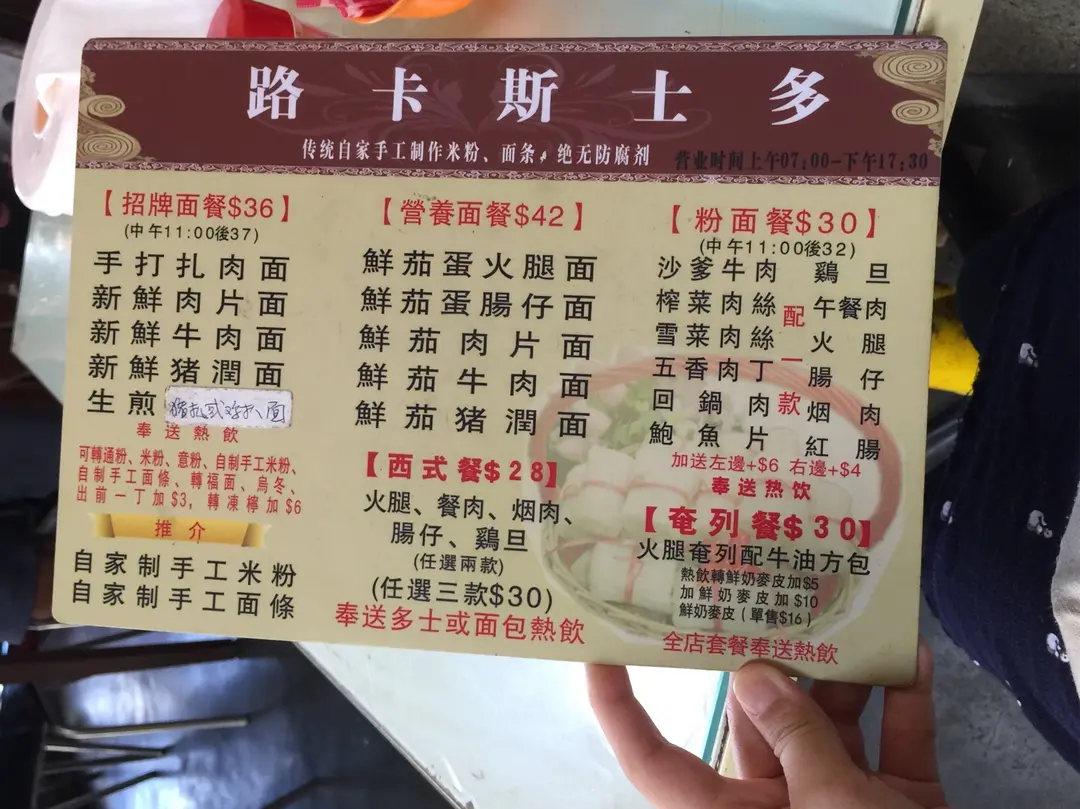 路卡斯士多
传统自家手工制作米粉、面条，绝无防腐剂
营业时间上午07:00-下午17:30
【招牌面餐$36】
(中午11:00後37)
手打扎肉面
新鮮肉片面
新鮮牛肉面
新鮮猪潤面
生煎猪扒或鸡扒面
奉送熱飲
可轉通粉、米粉、意粉、自制手工米粉、
自制手工面條、轉福面、烏冬、
出前一丁加$3，轉凍檸加$6
推介
自家制手工米粉
自家制手工面條
【營養面餐$42】
鮮茄蛋火腿面
鮮茄蛋腸仔面
鮮茄肉片面
鮮茄牛肉面
鮮茄猪潤面
【西式餐$28】
火腿、餐肉、烟肉、
腸仔、鷄旦
(任選兩款)
(任選三款$30)
奉送多士或面包熱飲
【粉面餐$30】
(中午11:00後32)
沙爹牛肉 鷄旦
榨菜肉絲 午餐肉
雪菜肉絲 火腿
五香肉丁 腸仔
回鍋肉 烟肉
鮑魚片 紅腸
配一款
加送左邊+$6 右邊+$4
奉送热饮
【奄列餐$30】
火腿奄列配牛油方包
熱飲轉鮮奶麥皮加$5
加鮮奶麥皮加$10
鮮奶麥皮（單售$16）
全店套餐奉送熱飲